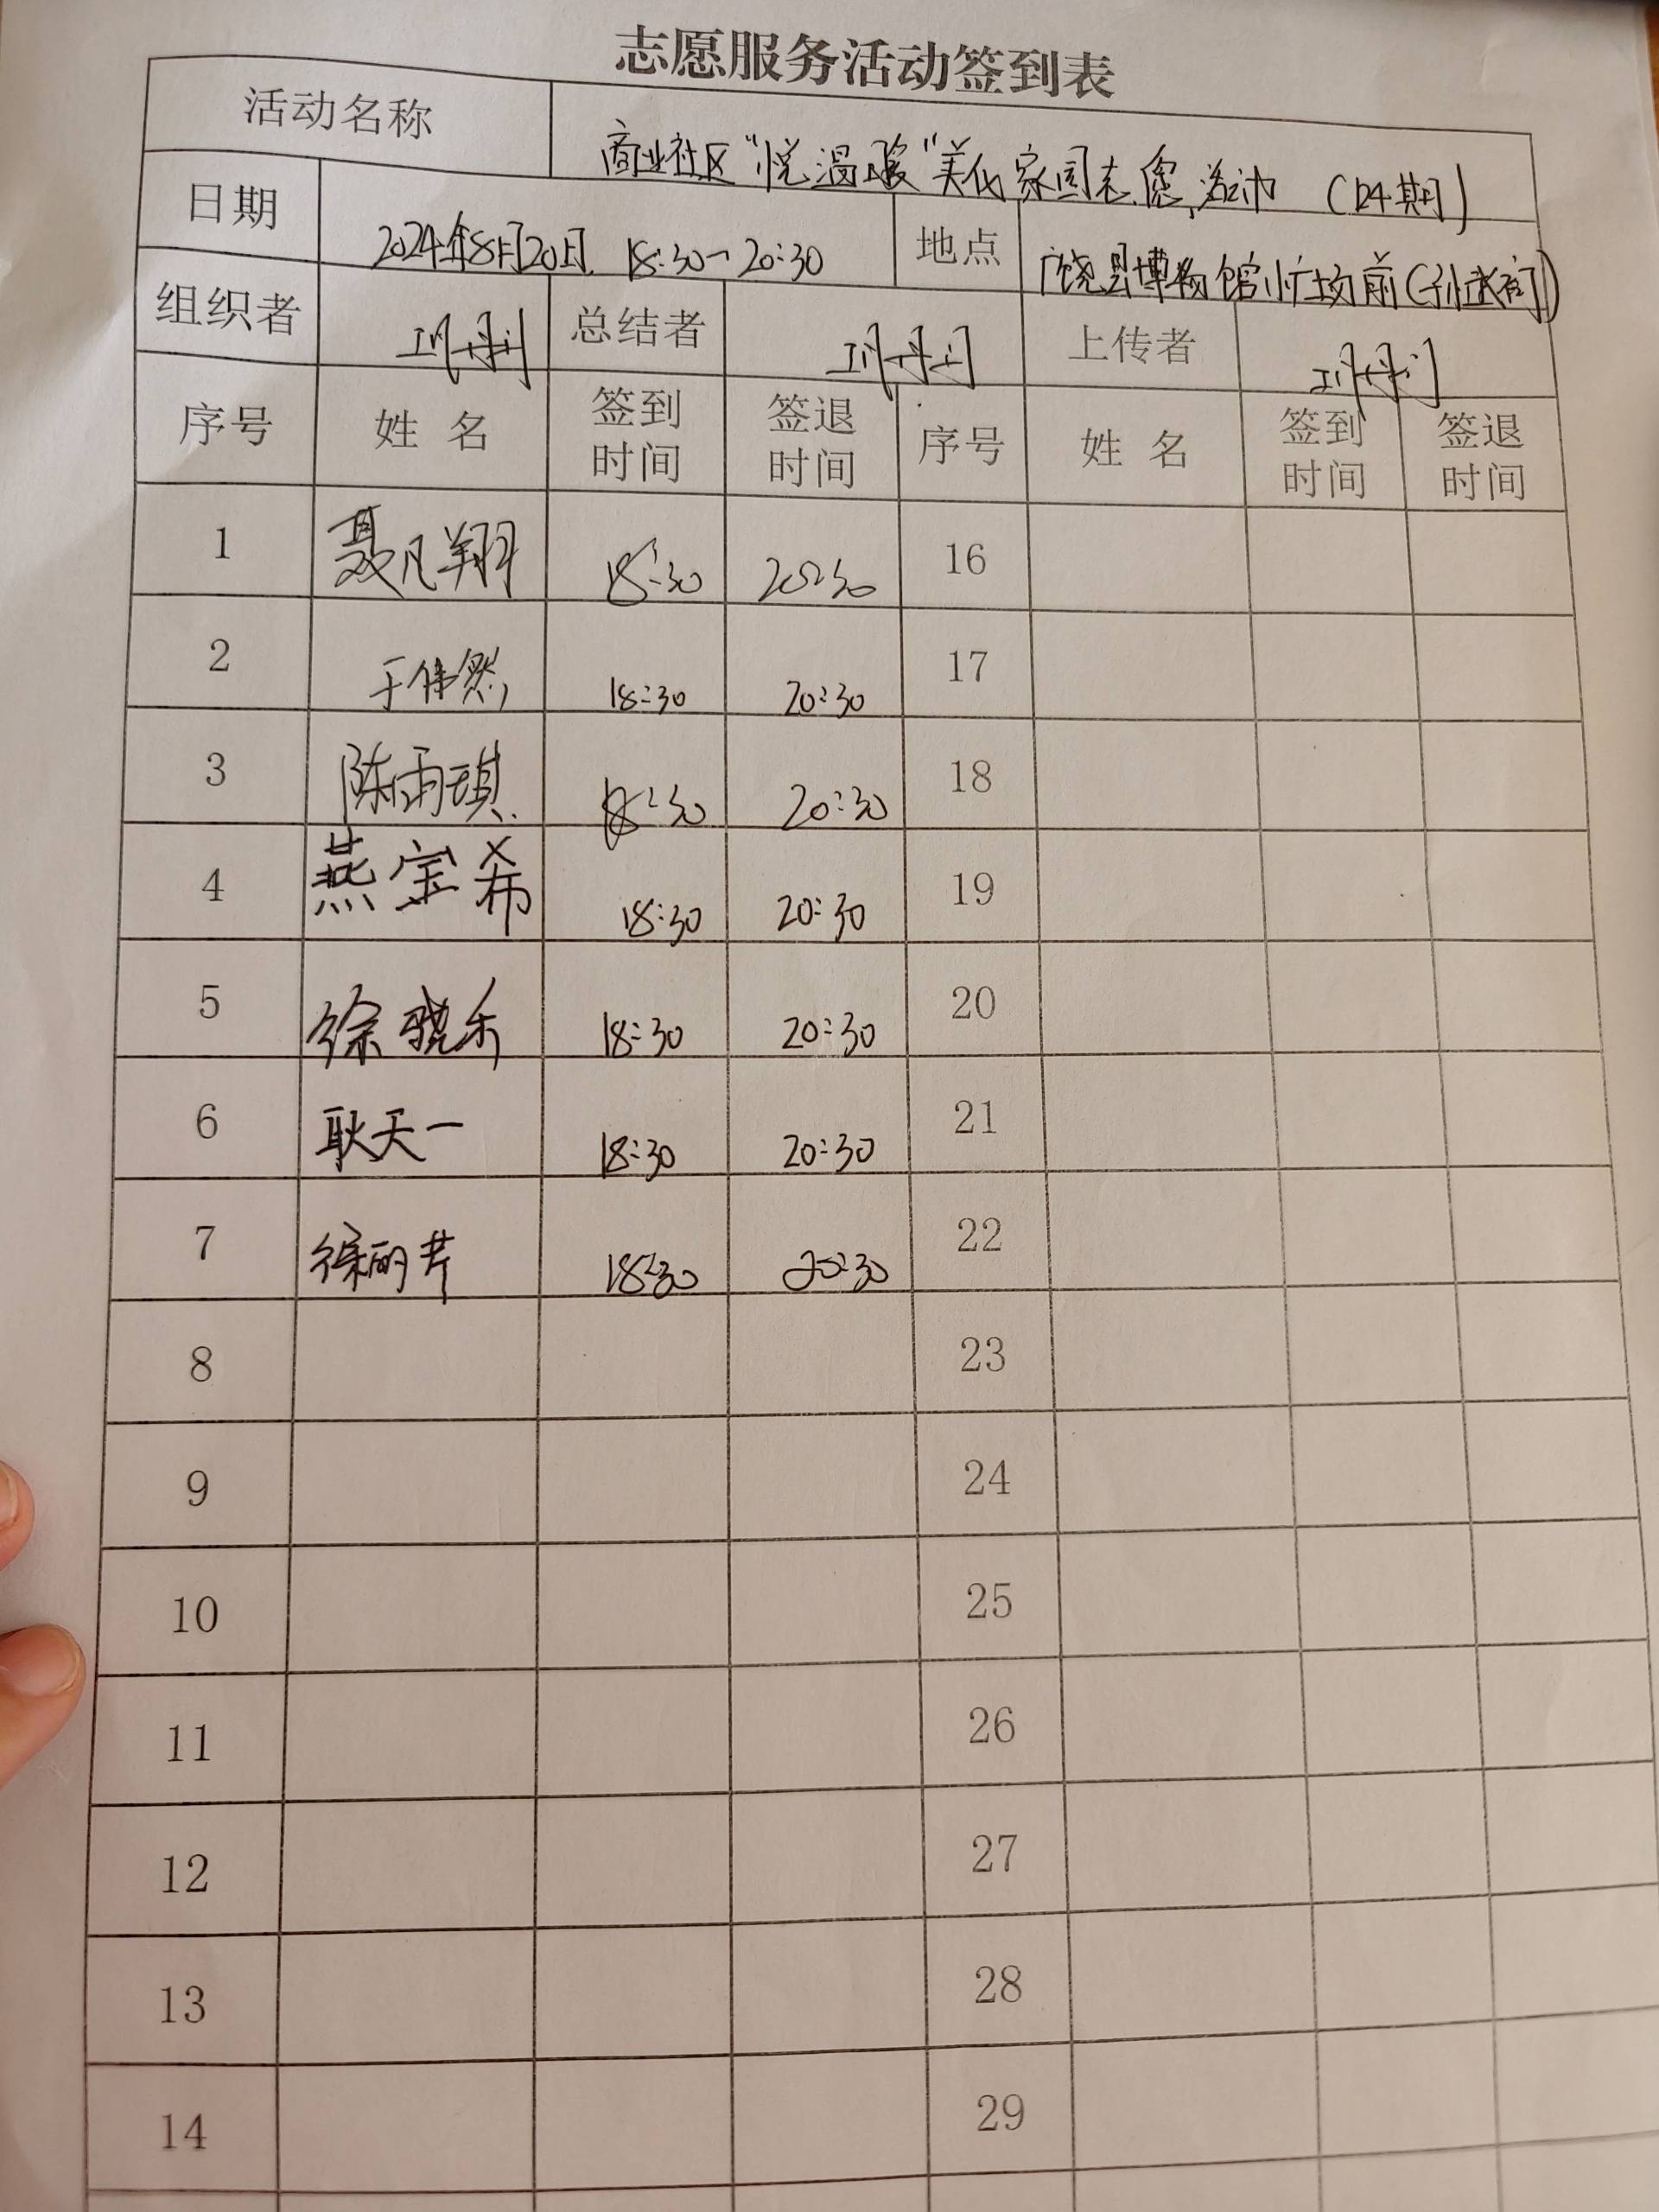 志愿服务活动签到表
活动名称 商业社区“悦温暖”美化家园志愿活动(124期)
日期 2024年8月20日 18:30-20:30 地点 广饶县博物馆小广场前(孙武祠)
组织者 总结者 上传者
序号 姓名 签到时间 签退时间 序号 姓名 签到时间 签退时间
1 聂凡翔 18:30 20:30 16
2 于伟然 18:30 20:30 17
3 陈雨琪 18:30 20:30 18
4 燕宝希 18:30 20:30 19
5 徐骁禾 18:30 20:30 20
6 耿天一 18:30 20:30 21
7 徐丽芹 18:30 20:30 22
8 23
9 24
10 25
11 26
12 27
13 28
14 29